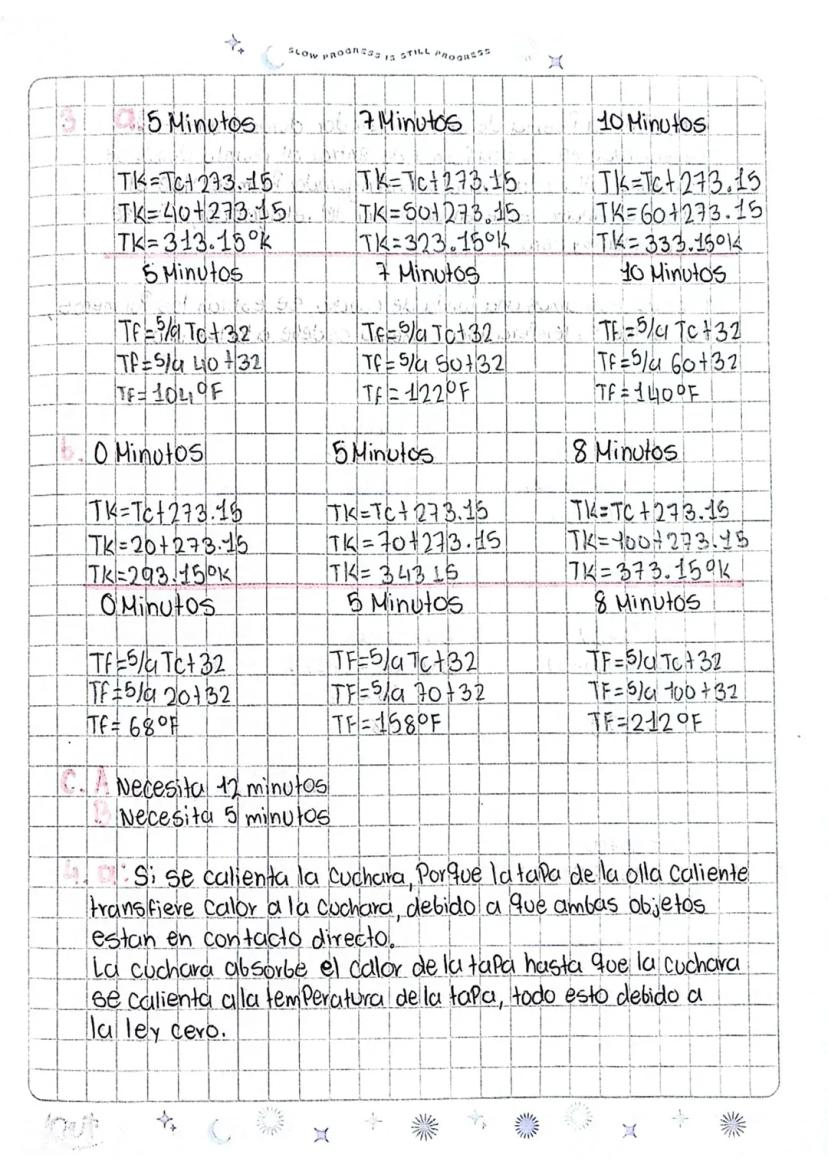 SLOW PROGRESS IS STILL PROGRESS
3 a. 5 Minutos 7 Minutos 10 Minutos
TK=Tc+273.15 TK=Tc+273.15 TK=Tc+273.15
TK=40+273.15 TK=50+273.15 TK=60+273.15
TK=313.15°K TK=323.15°K TK=333.15°K
5 Minutos 7 Minutos 10 Minutos
TF=5/9 Tc+32 TF=5/9 Tc+32 TF=5/9 TC+32
TF=5/9 40+32 TF=5/9 50+32 TF=5/9 60+32
TF=104°F TF=122°F TF=140°F
b. 0 Minutos 5 Minutos 8 Minutos
TK=Tc+273.15 TK=Tc+273.15 TK=TC+273.15
TK=20+273.15 TK=70+273.15 TK=100+273.15
TK=293.15°K TK=343 15 TK=373.15°K
0 Minutos 5 Minutos 8 Minutos
TF=5/9 Tc+32 TF=5/9 Tc+32 TF=5/9 Tc+32
TF=5/9 20+32 TF=5/9 70+32 TF=5/9 100+32
TF=68°F TF=158°F TF=212°F
C. A Necesita 12 minutos
B Necesita 5 minutos
4. a. Si se calienta la cuchara, Porque la tapa de la olla caliente
transfiere calor a la cuchara, debido a que ambas objetos
estan en contacto directo.
La cuchara absorbe el calor de la tapa hasta que la cuchara
se calienta a la temperatura de la tapa, todo esto debido a
la ley cero.